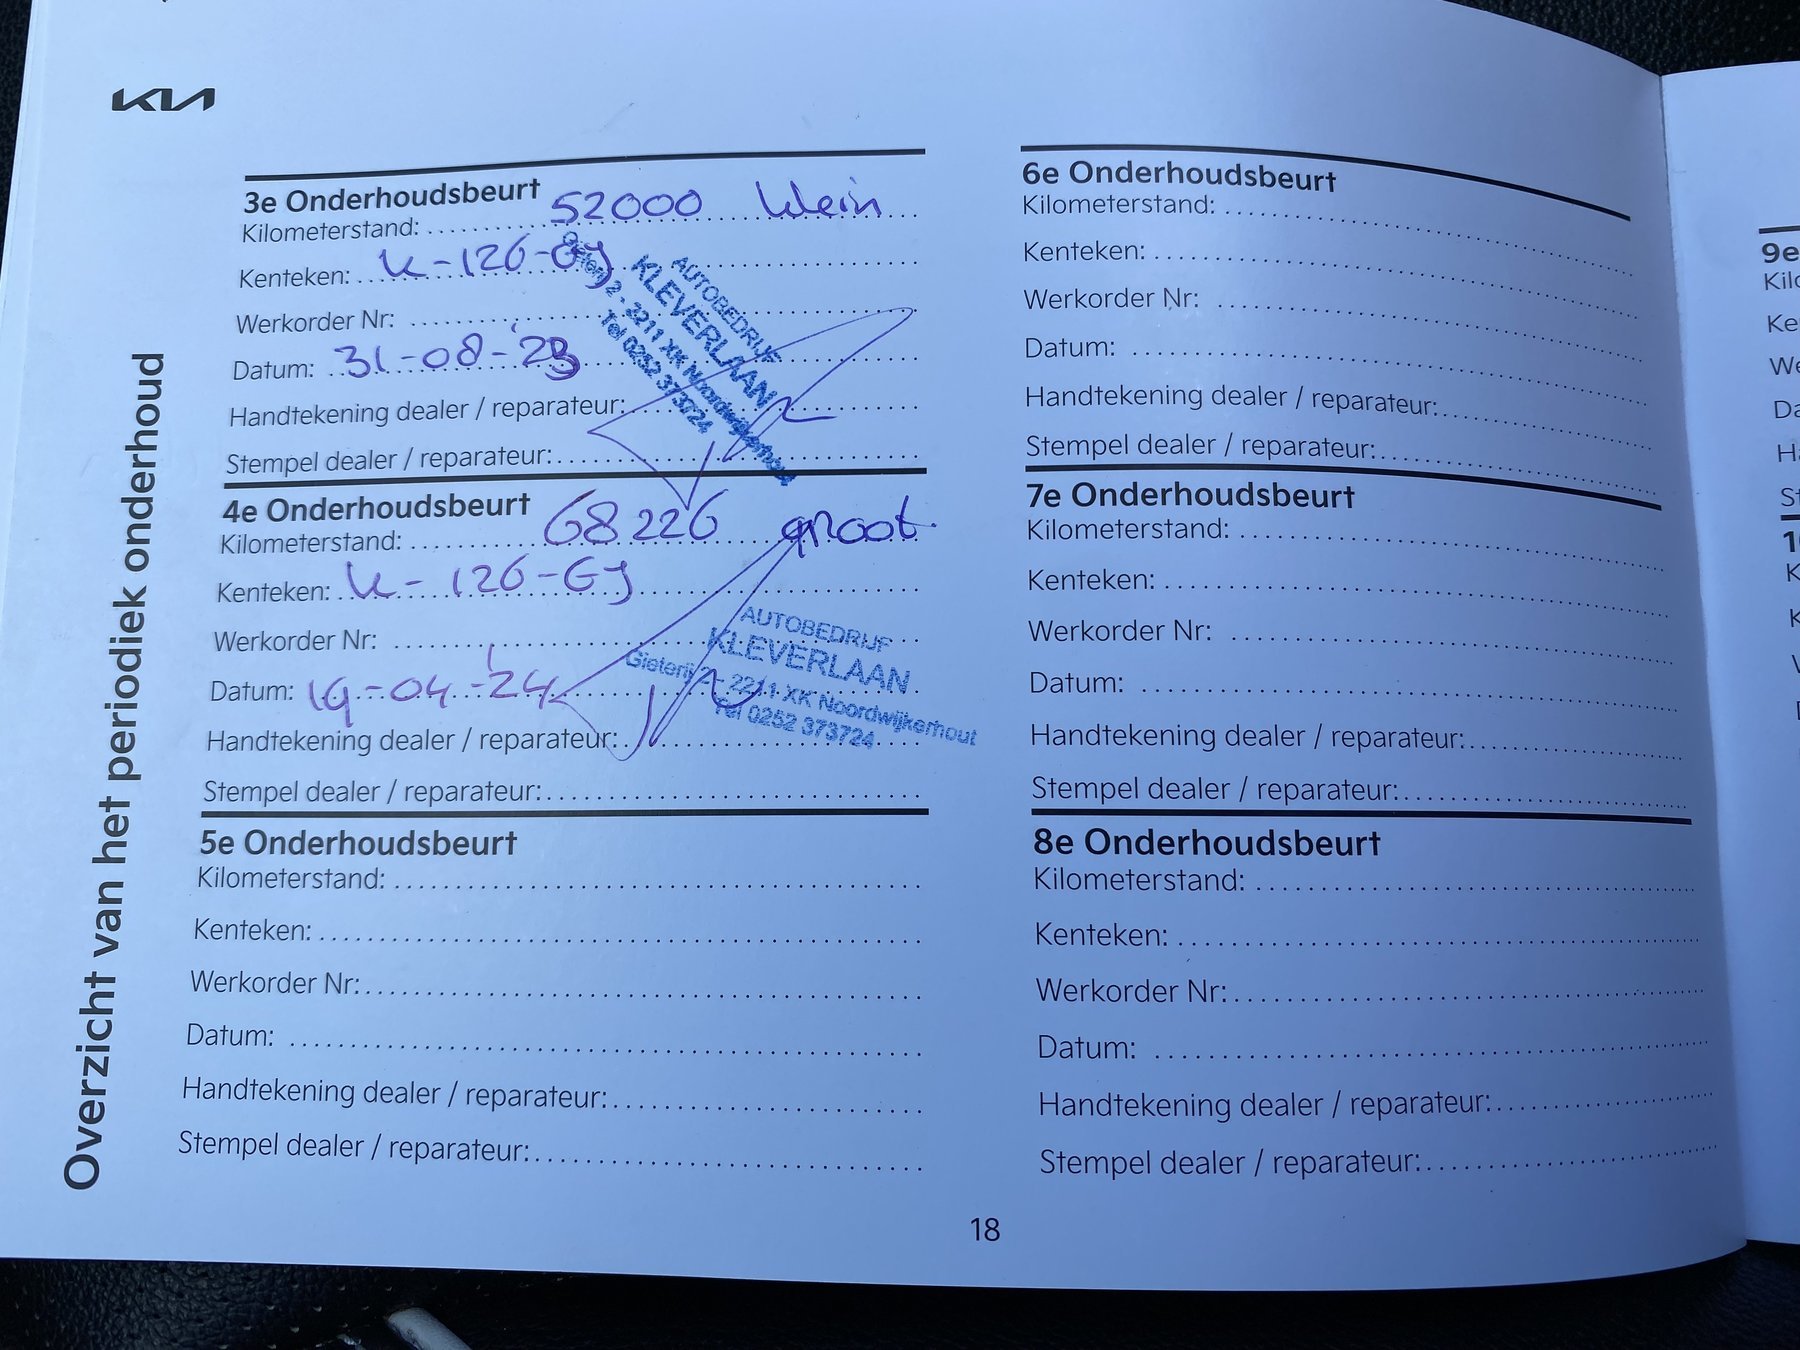 KIA
Overzicht van het periodiek onderhoud
3e Onderhoudsbeurt
Kilometerstand: 52000 klein
Kenteken: K-126-GJ
Werkorder Nr:
Datum: 31-08-'23
Handtekening dealer / reparateur:
Stempel dealer / reparateur:
AUTOBEDRIJF
KLEVERLAAN
Gieterij 2 - 2211 XK Noordwijkerhout
Tel 0252 373724
4e Onderhoudsbeurt
Kilometerstand: 68226 groot
Kenteken: K-126-GJ
Werkorder Nr:
Datum: 19-04-'24
Handtekening dealer / reparateur:
Stempel dealer / reparateur:
AUTOBEDRIJF
KLEVERLAAN
Gieterij 2 - 2211 XK Noordwijkerhout
Tel 0252 373724
5e Onderhoudsbeurt
Kilometerstand:
Kenteken:
Werkorder Nr:
Datum:
Handtekening dealer / reparateur:
Stempel dealer / reparateur:
6e Onderhoudsbeurt
Kilometerstand:
Kenteken:
Werkorder Nr:
Datum:
Handtekening dealer / reparateur:
Stempel dealer / reparateur:
7e Onderhoudsbeurt
Kilometerstand:
Kenteken:
Werkorder Nr:
Datum:
Handtekening dealer / reparateur:
Stempel dealer / reparateur:
8e Onderhoudsbeurt
Kilometerstand:
Kenteken:
Werkorder Nr:
Datum:
Handtekening dealer / reparateur:
Stempel dealer / reparateur:
18
9e